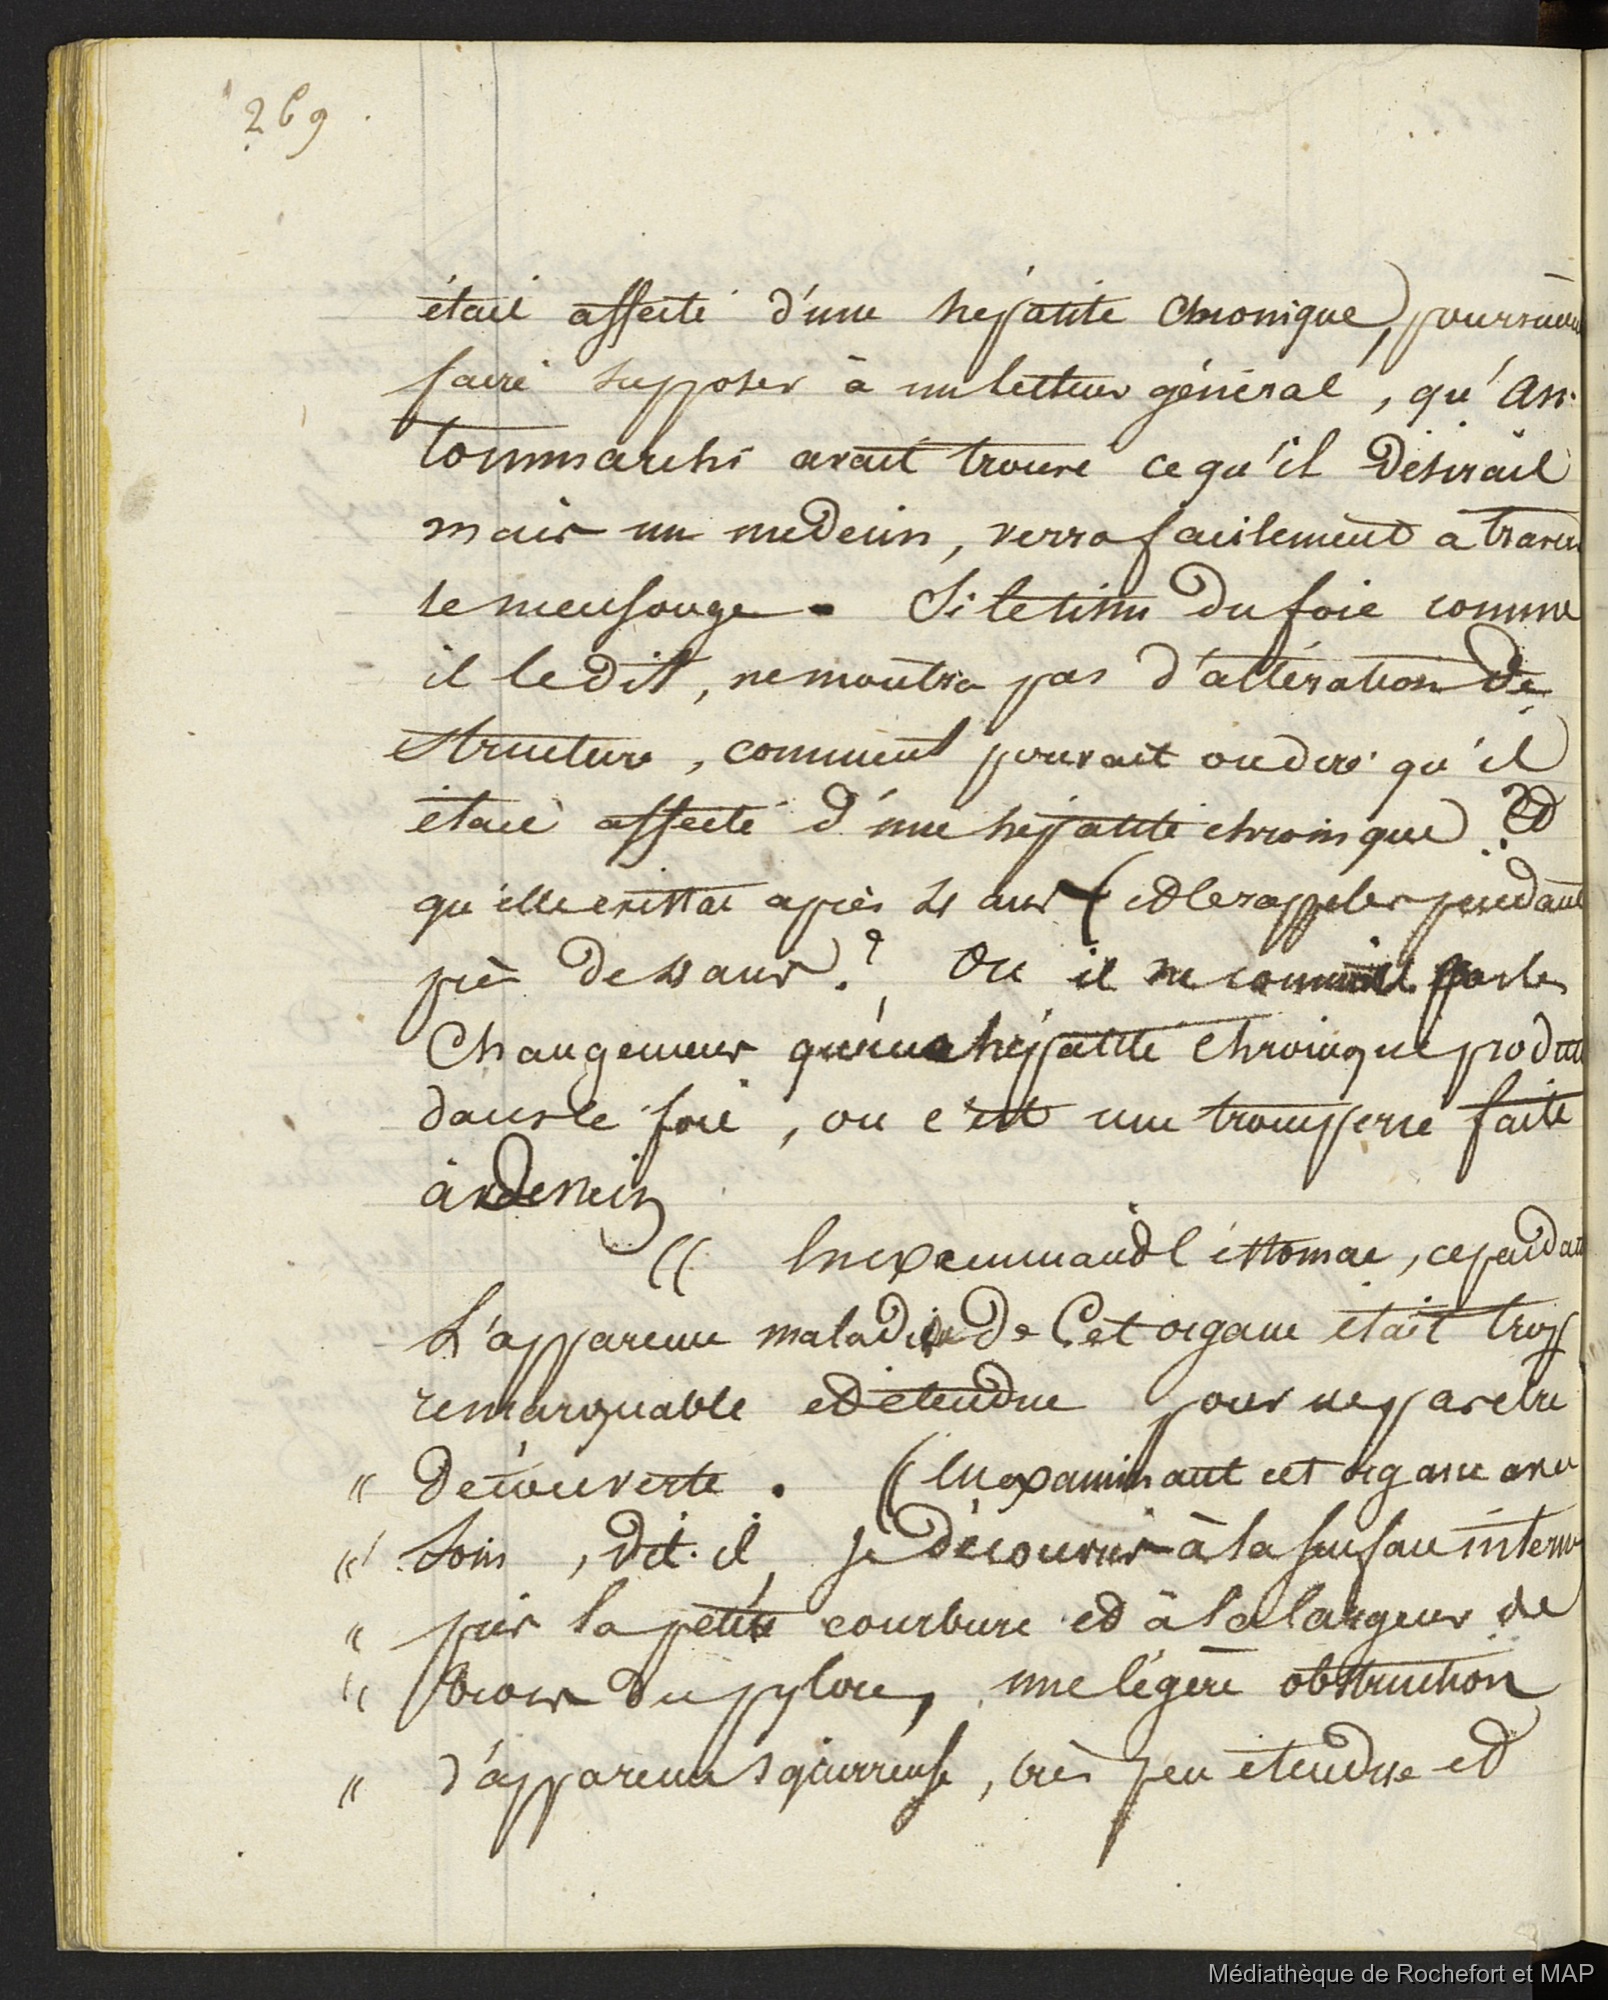 269
était affecté d'une hépatite chronique, pourrait
faire supposer à un lecteur général, qu'An-
tommarchi avait trouvé ce qu'il désirait
mais un medecin, verra facilement a travers
le mensonge. Si le tissu du foie comme
il le dit, ne montra pas d'altération de
structure, comment pouvait on dire qu'il
était affecté d'une hépatite chronique? Et
qu'elle exista après ans (et le rappeler pendant
près de ans? Ou il ne connait pas les
Changemens qu'une hépatite chronique produit
dans le foie, ou c'est une tromperie faite
à dessein
(( En examinant l'éstomac, cependant
L'apparence maladive de Cet organe était trop
remarquable et étendue pour ne pas etre
" Découverte. (( En examinant cet organe avec
" Soin, dit-il, je découvris à la surface interne
" près la petite courbure et à la largeur de
" trois du pylore, une légère obstruction
" d'apparence squirreuse, très peu étendue et
Médiathèque de Rochefort et MAP